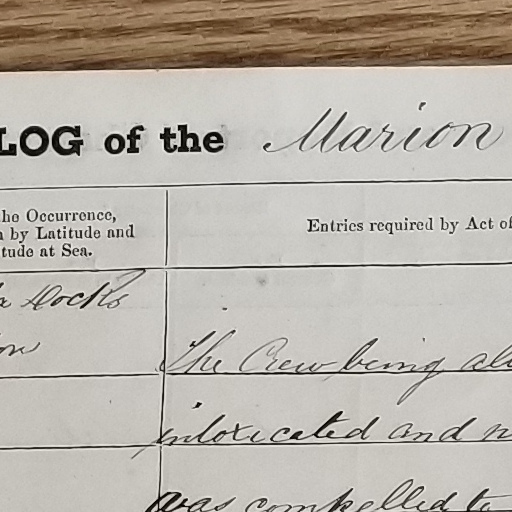 LOG of the Marion
he Occurrence,
by Latitude and
tude at Sea.
Entries required by Act of
Docks
on
The Crew being all
intoxicated and n
was compelled to